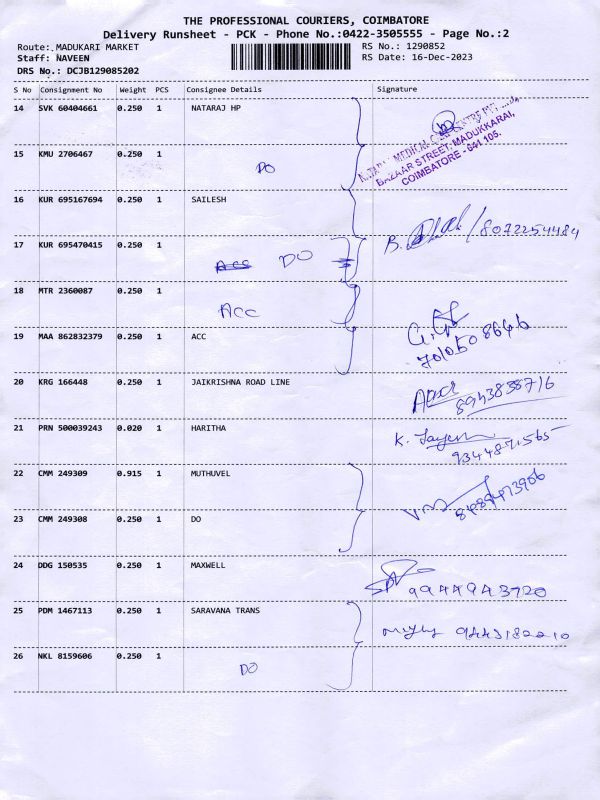 THE PROFESSIONAL COURIERS, COIMBATORE
Delivery Runsheet - PCK - Phone No.:0422-3505555 - Page No.:2
Route: MADUKARI MARKET RS No.: 1290852
Staff: NAVEEN RS Date: 16-Dec-2023
DRS No.: DCJB129085202
S No Consignment No Weight PCS Consignee Details Signature
14 SVK 60404661 0.250 1 NATARAJ HP
MEDICAL CENTRE
BAZAAR STREET, MADUKKARAI,
COIMBATORE - 641 105.
15 KMU 2706467 0.250 1
DO
16 KUR 695167694 0.250 1 SAILESH
B. /8072254484
17 KUR 695470415 0.250 1
ACC DO
18 MTR 2360087 0.250 1
ACC
19 MAA 862832379 0.250 1 ACC
7010508646
20 KRG 166448 0.250 1 JAIKRISHNA ROAD LINE
8943838716
21 PRN 500039243 0.020 1 HARITHA
K.
9344871565
22 CMM 249309 0.915 1 MUTHUVEL
23 CMM 249308 0.250 1 DO
24 DDG 150535 0.250 1 MAXWELL
9944943720
25 PDM 1467113 0.250 1 SARAVANA TRANS
9443182210
26 NKL 8159606 0.250 1
DO